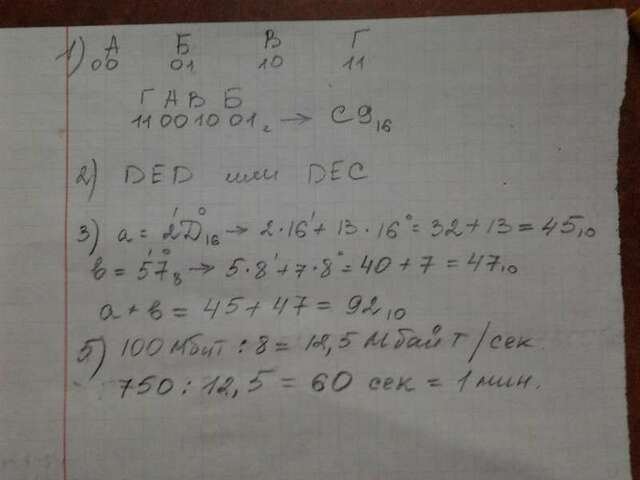 1) А Б В Г
00 01 10 11
Г А В Б
11 00 10 01₂ → C9₁₆
2) DED или DEC
1 0
3) a = 2D₁₆ → 2·16¹ + 13·16⁰ = 32 + 13 = 45₁₀
1 0
b = 57₈ → 5·8¹ + 7·8⁰ = 40 + 7 = 47₁₀
a + b = 45 + 47 = 92₁₀
5) 100 Мбит : 8 = 12,5 Мбайт/сек
750 : 12,5 = 60 сек = 1 мин.